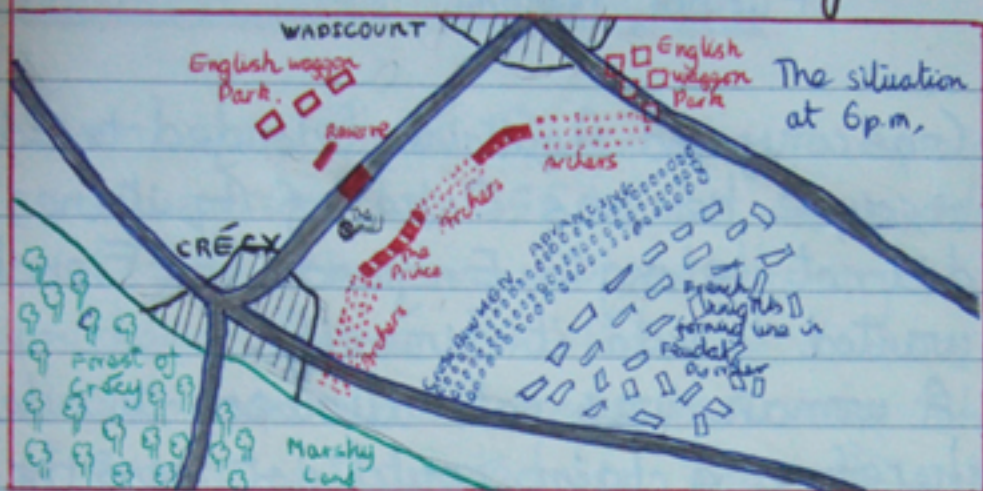 WADICOURT
English waggon
Park.
English
waggon
Park
The situation
at 6p.m,
Reserve
Archers
Archers
The
Prince
Archers
CRÉCY
CROSSBOWMEN ADVANCING
French
knights
forming line in
Feudal
Forest of
Crécy
Marshy
Land